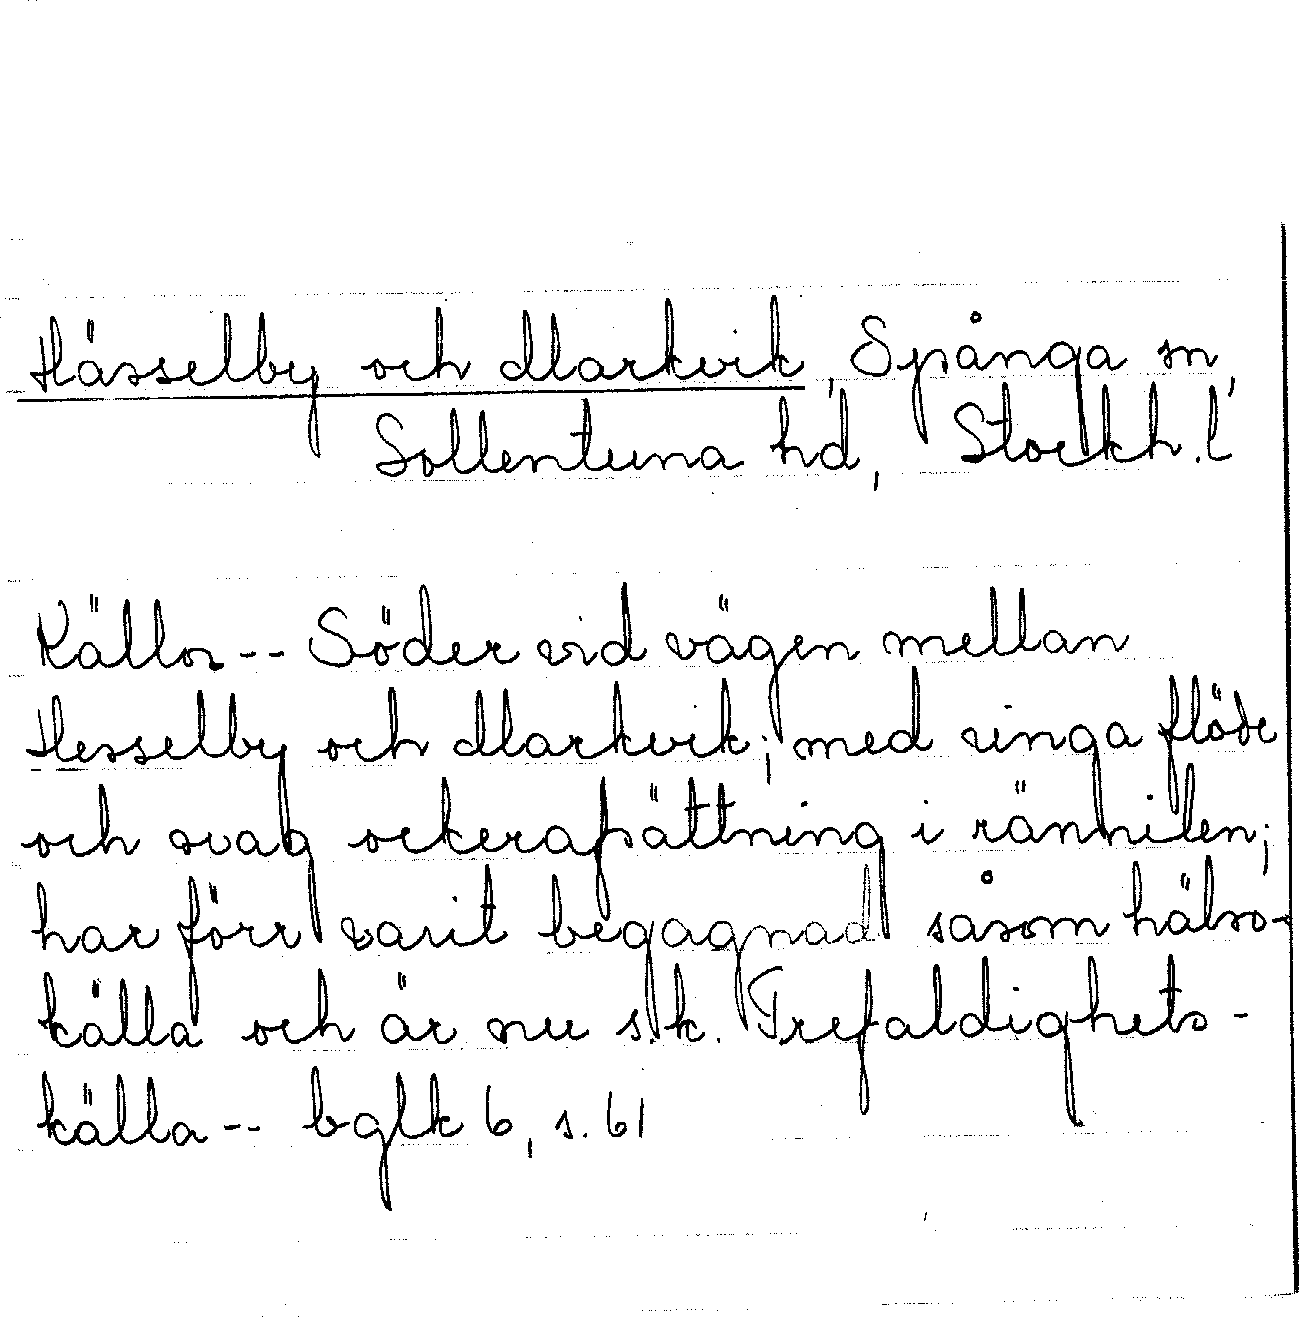 Hässelby och Markvik, Spånga sn,
Sollentuna hd, Stockh. l
Källor -- Söder vid vägen mellan
Hesselby och Markvik; med ringa flöde
och svag ockerafsättning i rännilen;
har förr varit begagnad såsom hälso-
källa och är nu s.k. Trefaldighets-
källa -- bglk 6, s. 61